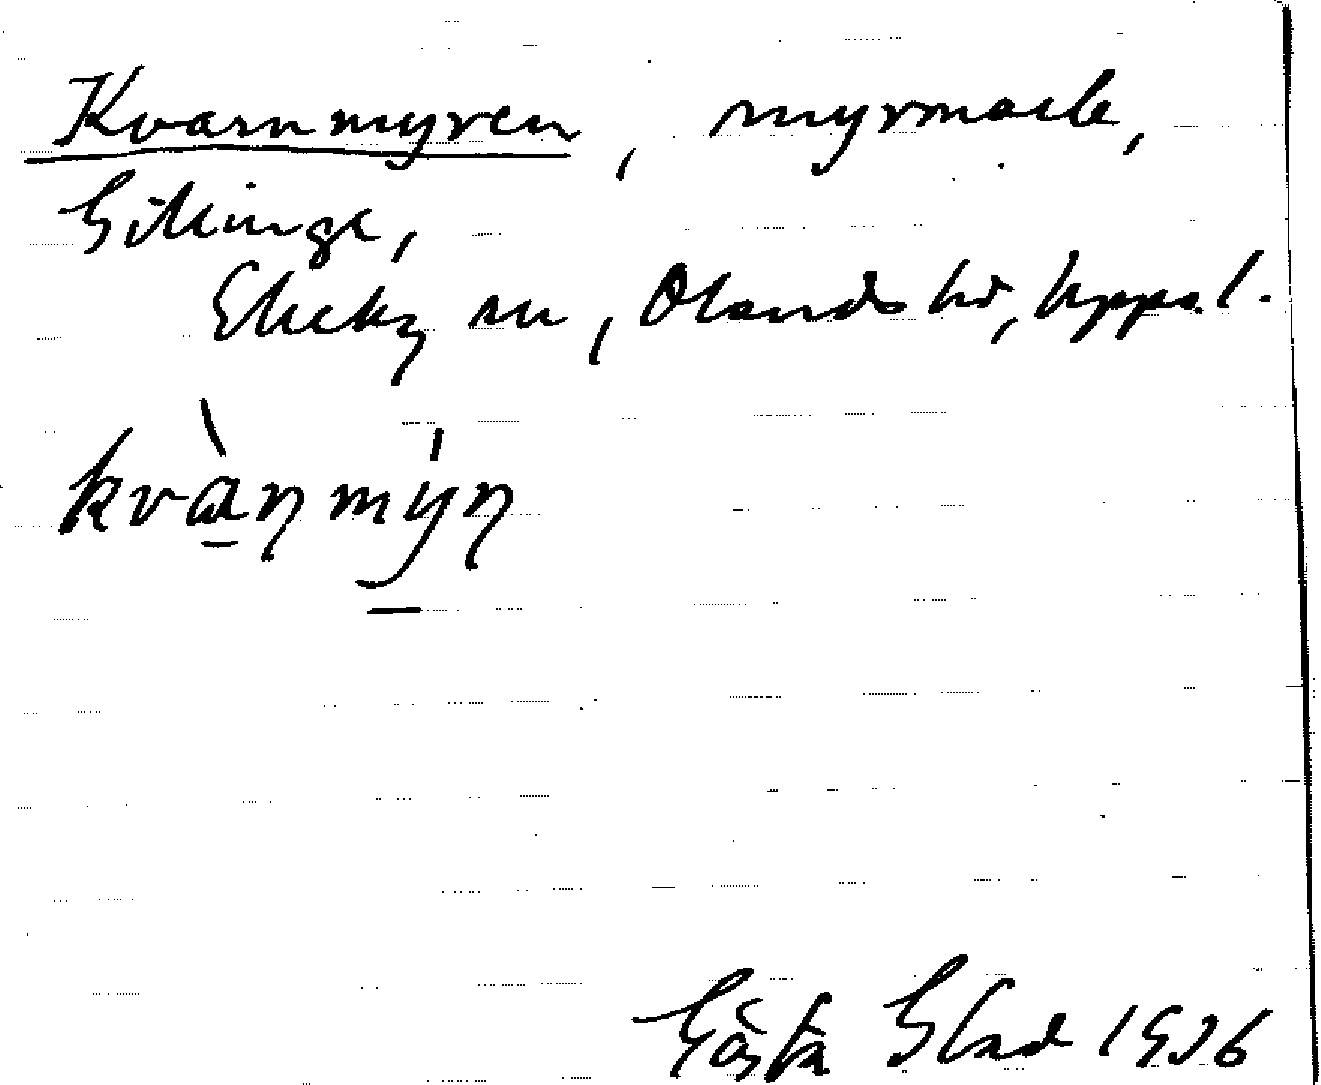 Kvarnmyren, myrmark,
Gillinge,
Ekeby sn, Olands hd, Upps. l.
kvàṇmýṇ
Gösta Blad 1936